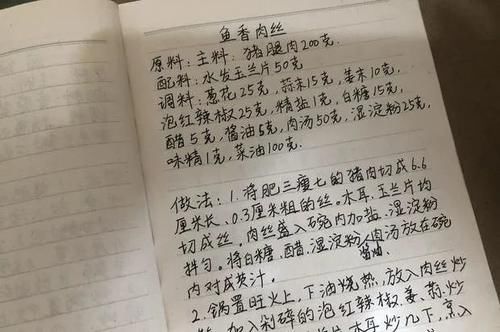 鱼香肉丝
原料：主料：猪腿肉200克.
配料：水发玉兰片50克
调料：葱花25克，蒜末15克，姜末10克，
泡红辣椒25克，精盐1克，白糖15克，
醋5克，酱油5克，肉汤50克，湿淀粉25克，
味精1克，菜油100克.
做法：1.将肥三瘦七的猪肉切成6.6
厘米长、0.3厘米粗的丝。木耳、玉兰片均
切成丝，肉丝盛入碗内加盐、湿淀粉
拌匀。将白糖、醋、湿淀粉、酱油、肉汤放在碗
内对成芡汁。
2.锅置旺火上，下油烧热，放入肉丝炒
加入剁碎的泡红辣椒、姜、蒜炒
木耳炒几下，烹入